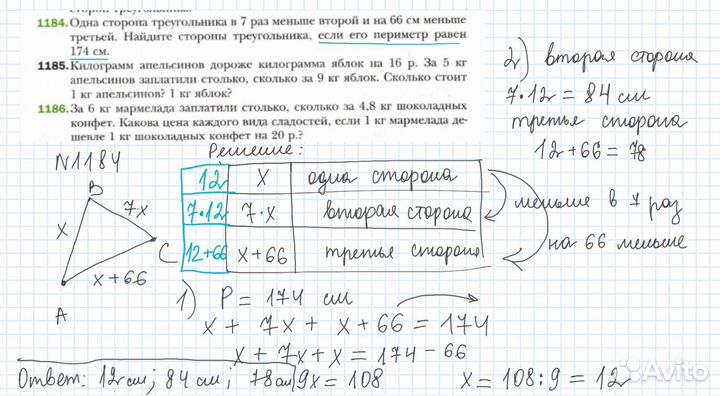 1184. Одна сторона треугольника в 7 раз меньше второй и на 66 см меньше
третьей. Найдите стороны треугольника, если его периметр равен
174 см.
1185. Килограмм апельсинов дороже килограмма яблок на 16 р. За 5 кг
апельсинов заплатили столько, сколько за 9 кг яблок. Сколько стоит
1 кг апельсинов? 1 кг яблок?
1186. За 6 кг мармелада заплатили столько, сколько за 4,8 кг шоколадных
конфет. Какова цена каждого вида сладостей, если 1 кг мармелада де-
шевле 1 кг шоколадных конфет на 20 р.?
N1184
Решение:
B
x
7·x
C
x+66
A
12 x одна сторона
7·12 7·x вторая сторона
12+66 x+66 третье сторона
меньше в 7 раз
на 66 меньше
1) P = 174 см
x + 7x + x + 66 = 174
x + 7x + x = 174 - 66
9x = 108
x = 108 : 9 = 12
2) вторая сторона
7·12 = 84 см
третье сторона
12 + 66 = 78
Ответ: 12 см; 84 см; 78 см
Avito